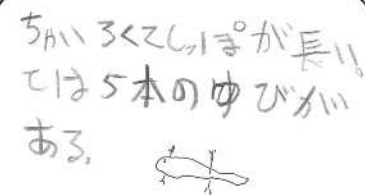 ちゃいろくてしっぽが長い。
ては5本のゆびがい
ある。